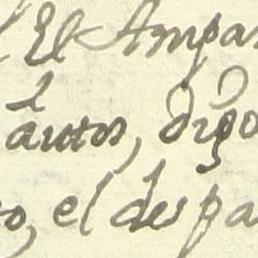 El Ampa
autos, digo
o, el despa